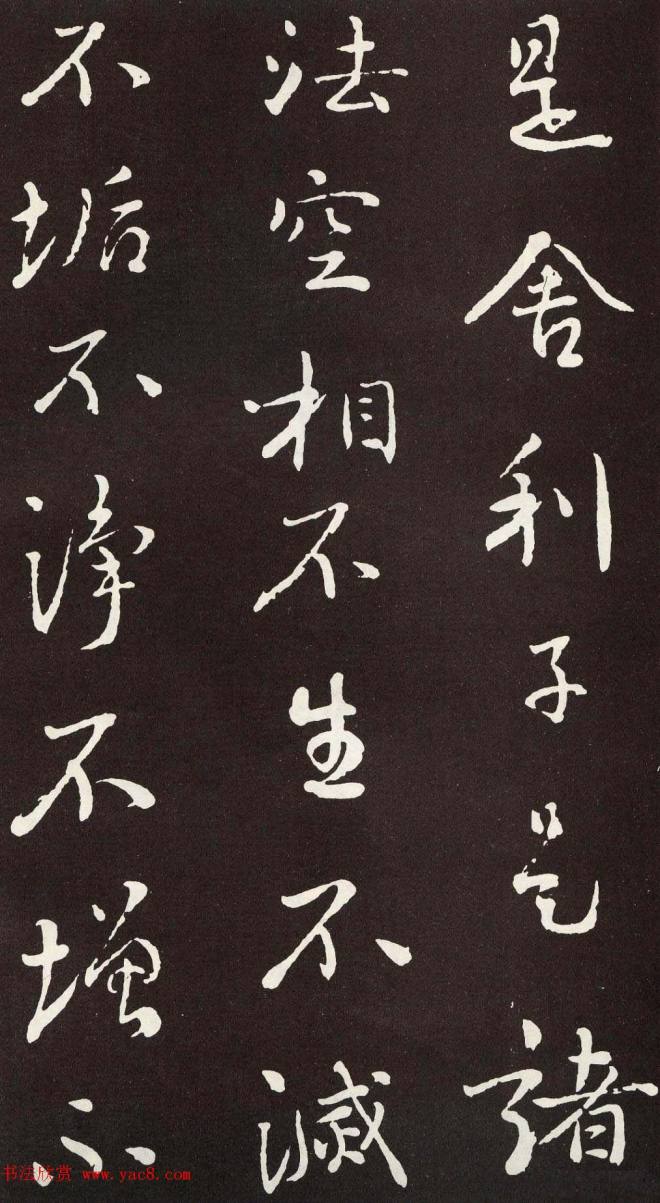 是舍利子是諸
法空相不生不滅
不垢不淨不增不
书法欣赏 www.yac8.com